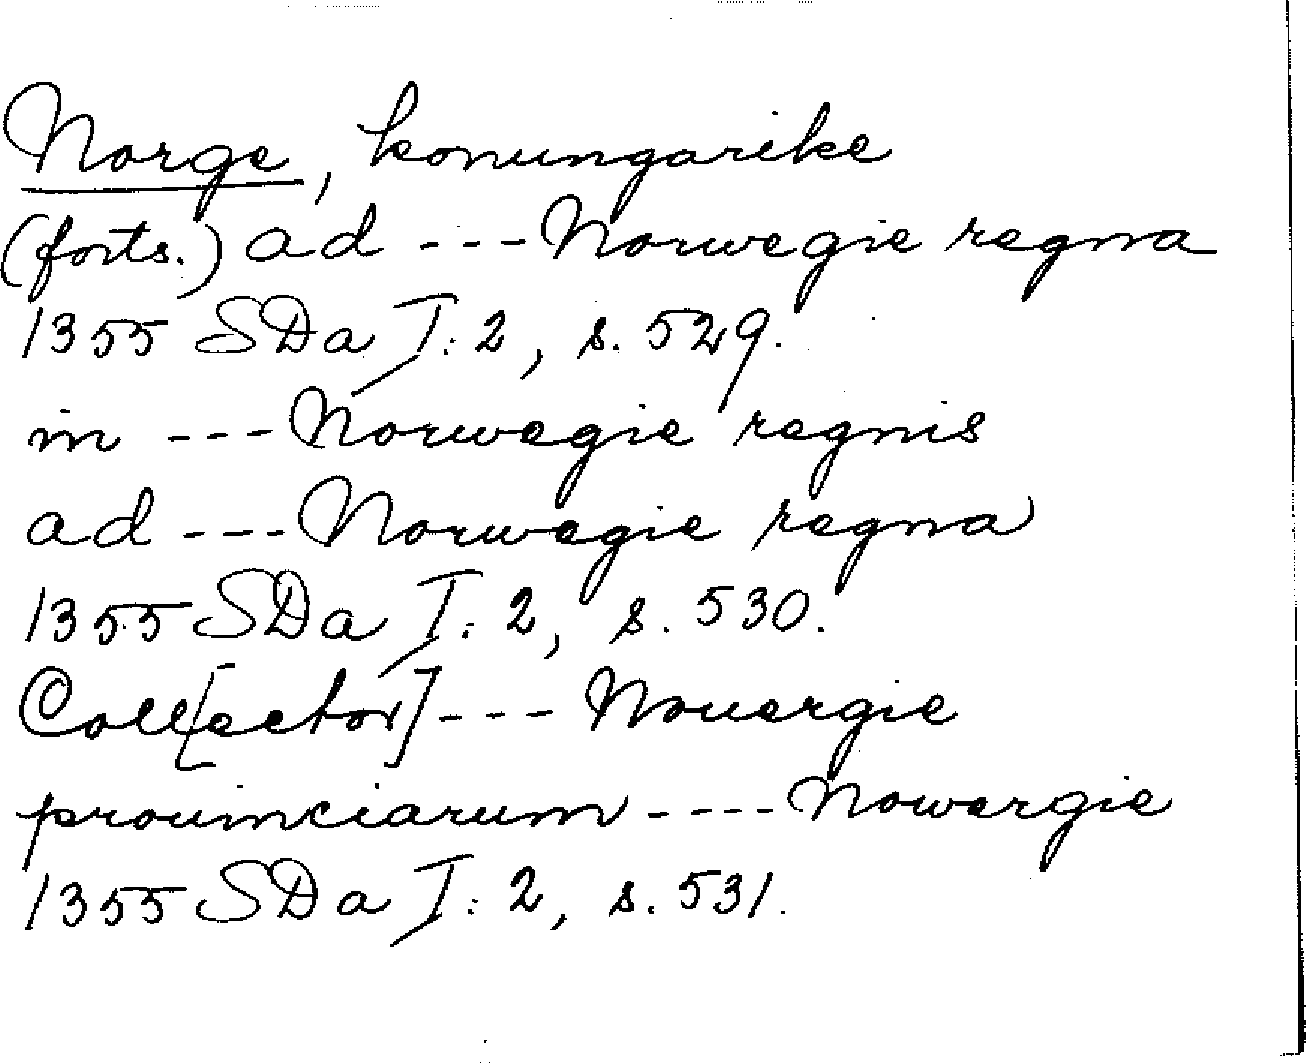 Norge, konungarike
(forts.) ad --- Norwegie regna
1355 SDa I: 2, s. 529.
in --- Norwegie regnis
ad --- Norwegie regna
1355 SDa I: 2, s. 530.
Coll[ector] --- Nouergie
prouinciarum ---- Nowergie
1355 SDa I: 2, s. 531.